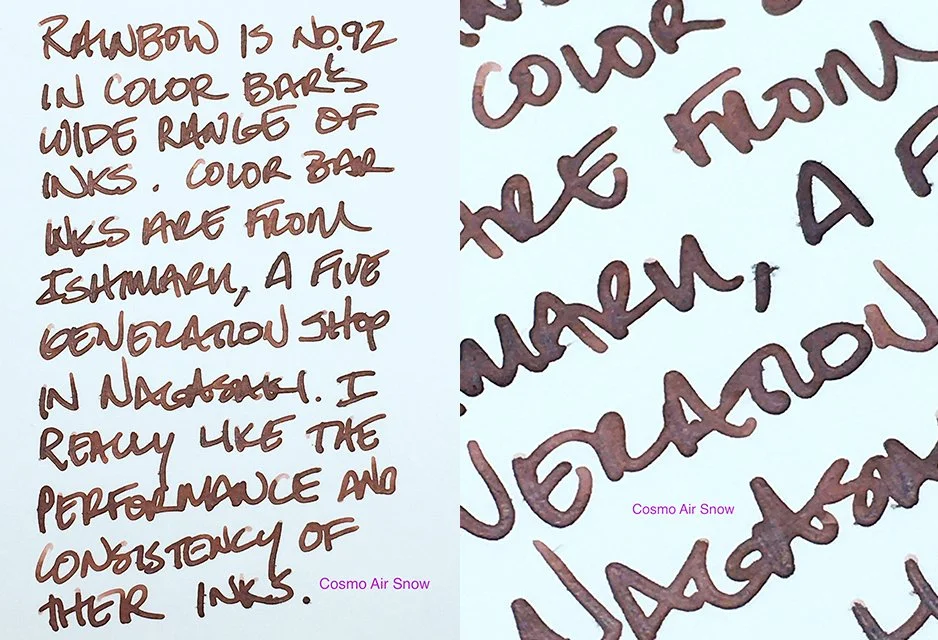 RAINBOW IS NO.92
IN COLOR BAR'S
WIDE RANGE OF
INKS. COLOR BAR
INKS ARE FROM
ISHMARU, A FIVE
GENERATION SHOP
IN NAGASAKI. I
REALLY LIKE THE
PERFORMANCE AND
CONSISTENCY OF
THEIR INKS.
Cosmo Air Snow
COLOR
ARE FROM
MARU, A F
NERATION
Cosmo Air Snow
NAGASAK